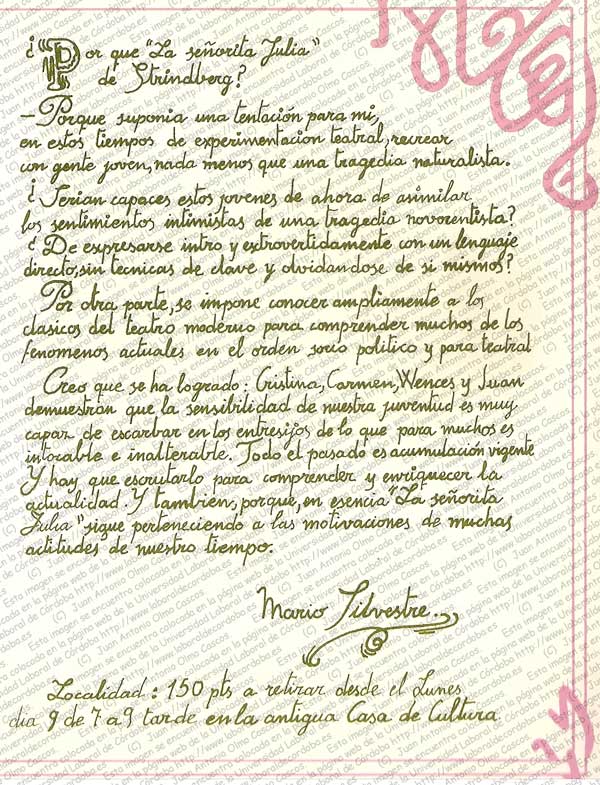 ¿Por que "La señorita Julia"
de Strindberg?
- Porque suponia una tentación para mi,
en estos tiempos de experimentacion teatral, recrear
con gente joven, nada menos que una tragedia naturalista.
¿Serian capaces estos jovenes de ahora de asimilar
los sentimientos intimistas de una tragedia novorentista?
¿De expresarse intro y extrovertidamente con un lenguaje
directo, sin tecnicas de clave y olvidandose de si mismos?
Por otra parte, se impone conocer ampliamente a los
clasicos del teatro moderno para comprender muchos de los
fenomenos actuales en el orden socio politico y para teatral
Creo que se ha logrado: Cristina, Carmen, Wences y Juan
demuestran que la sensibilidad de nuestra juventud es muy
capaz de escarbar en los entresijos de lo que para muchos es
intocable e inalterable. Todo el pasado es acumulación vigente
Y hay que escrutarlo para comprender y enriquecer la
actualidad. Y tambien, porque, en esencia "La señorita
Julia" sigue perteneciendo a las motivaciones de muchas
actitudes de nuestro tiempo.
Mario Silvestre.
Localidad: 150 pts a retirar desde el Lunes
dia 9 de 7 a 9 tarde en la antigua Casa de Cultura